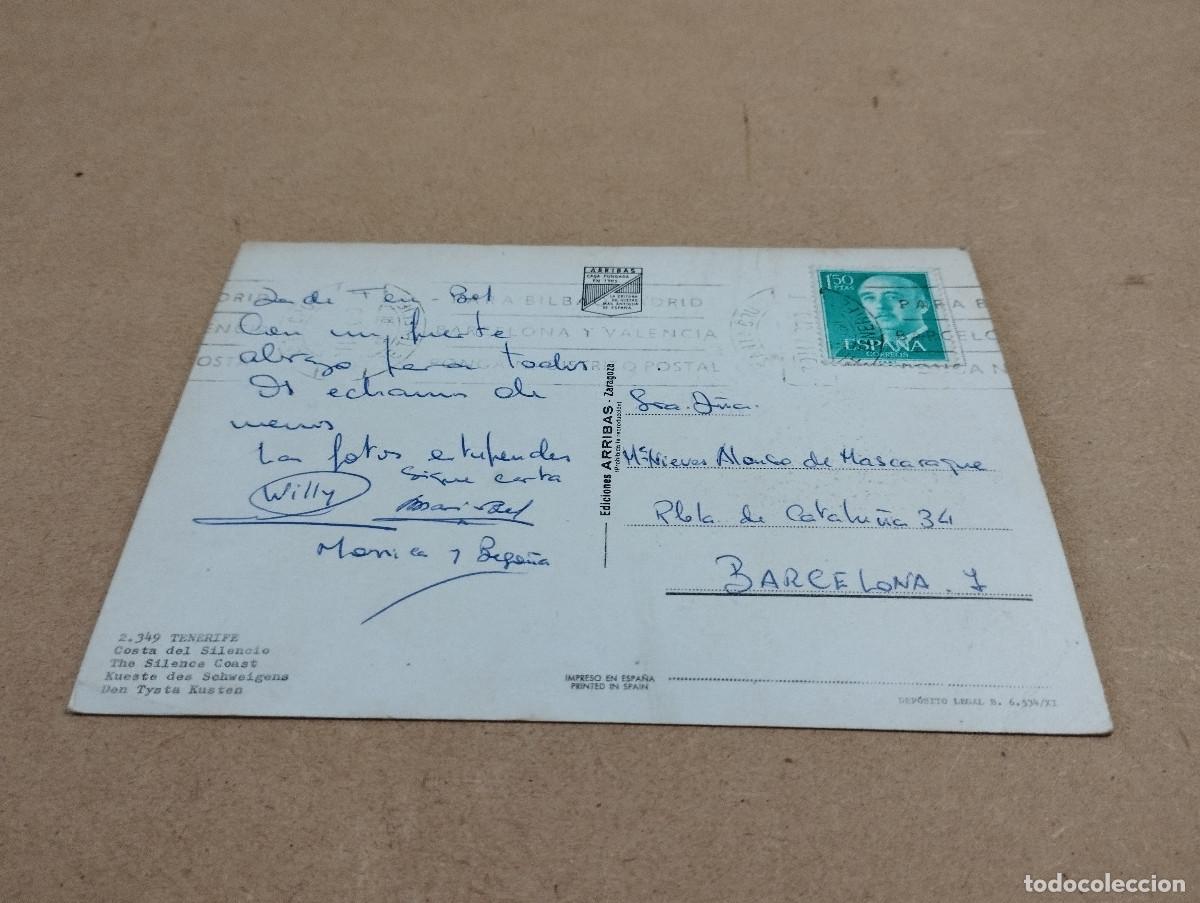 ARRIBAS
CASA FUNDADA
EN 1905
LA EDITORA
DE VISTAS
MAS ANTIGUA
DE ESPAÑA
de Ten-Bel
Con un fuerte
abrazo para todos
Os echamos de
menos
Las fotos estupendas
Sigue carta
Willy
Monica y Begoña
2.349 TENERIFE
Costa del Silencio
The Silence Coast
Kueste des Schweigens
Den Tysta Kusten
Ediciones ARRIBAS - Zaragoza
(Prohibida la reproducción)
IMPRESO EN ESPAÑA
PRINTED IN SPAIN
PARA BILBAO, MADRID
BARCELONA Y VALENCIA
PONGA DISTRITO POSTAL
1'50
PTAS
ESPAÑA
CORREOS
PARA B
Sra. Dña.
Mª Nieves Alonso de Mascaraque
Rbla. de Cataluña 34
BARCELONA. 7
DEPÓSITO LEGAL B. 6.534/XI
todocoleccion